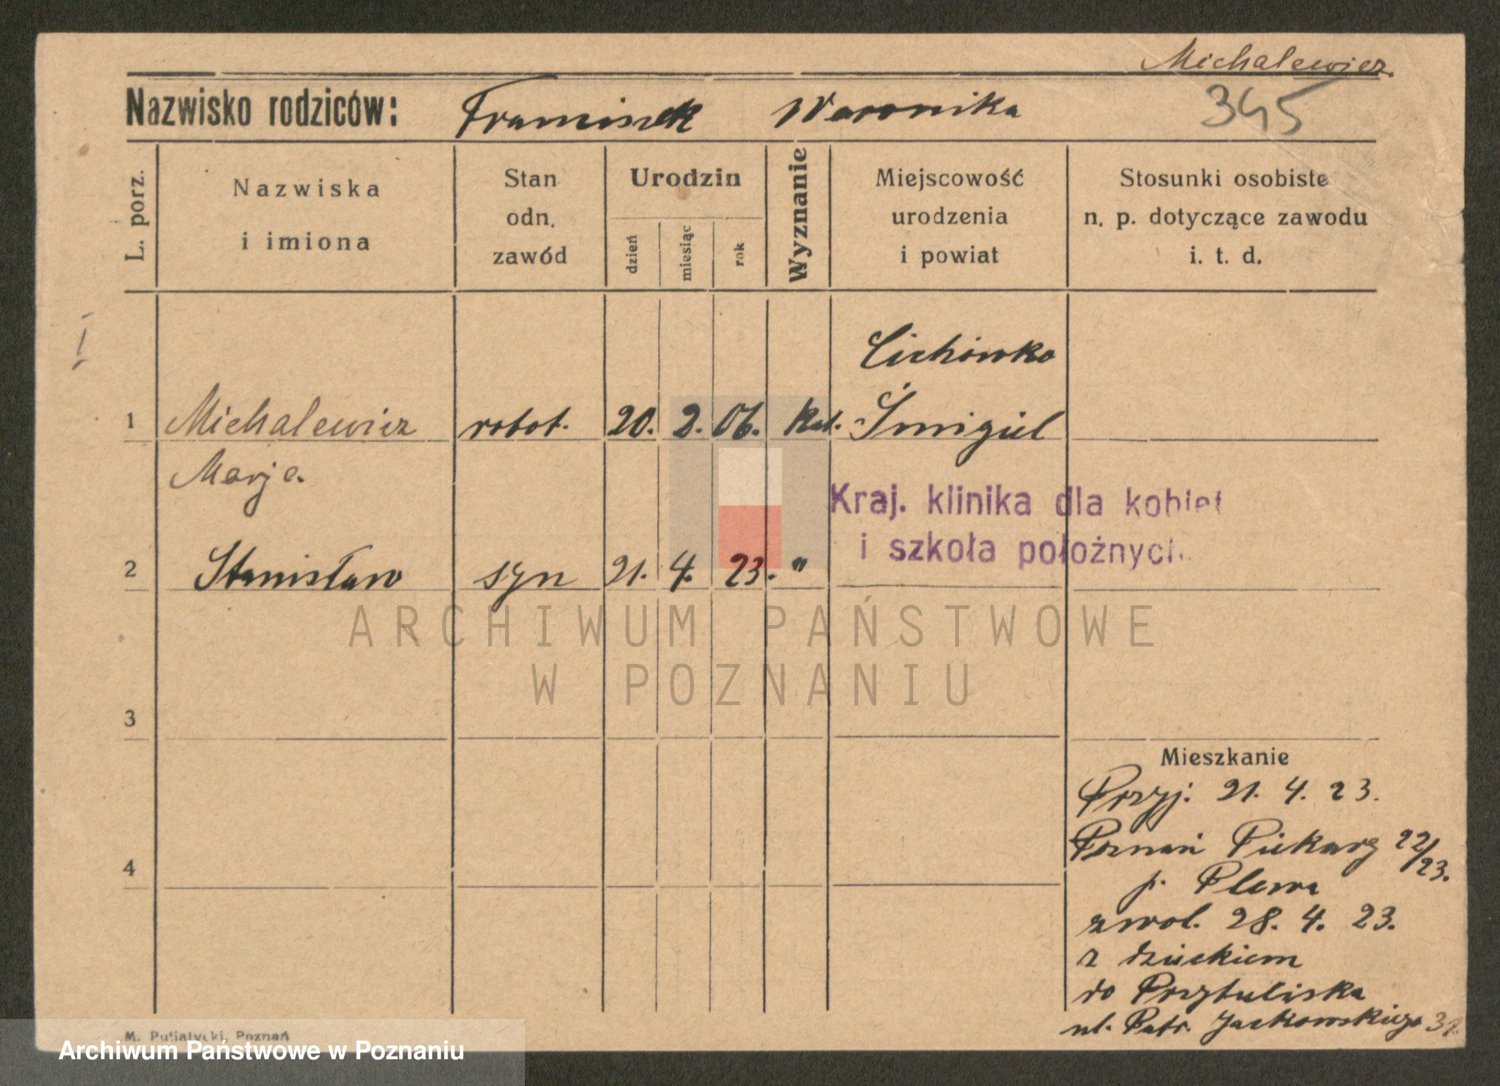 Michalewicz
Nazwisko rodziców: Franciszek Weronika 345
L. porz.
Nazwiska
i imiona
Stan
odn.
zawód
Urodzin
dzień
miesiąc
rok
Wyznanie
Miejscowość
urodzenia
i powiat
Stosunki osobiste
n. p. dotyczące zawodu
i. t. d.
Cichówko
1 Michalewicz robot. 20. 2. 06. Kat. Śmigiel
Marja.
Kraj. klinika dla kobiet
i szkoła położnych.
2 Stanisław syn 21. 4. 23. "
ARCHIWUM PAŃSTWOWE
W POZNANIU
3
Mieszkanie
Przyj. 21. 4. 23.
Poznań Piekary 22/23.
p. Plewa
4
zwol. 28. 4. 23.
z dzieckiem
do Przytuliska
ul. Patr. Jackowskiego 31.
M. Putiatycki, Poznań
Archiwum Państwowe w Poznaniu